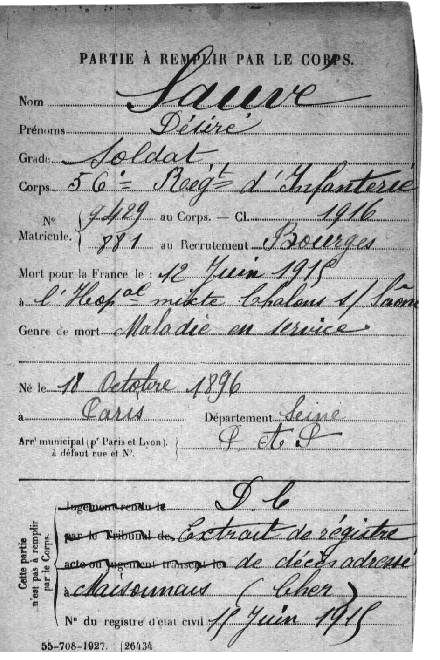 PARTIE À REMPLIR PAR LE CORPS.
Nom Sauvé
Prénoms Désiré
Grade Soldat
Corps 56e Regt d'Infanterie
N° 9429 au Corps. — Cl. 1916
Matricule. 881 au Recrutement Bourges
Mort pour la France le : 12 Juin 1915
à l'Hopal mixte Chalons s/ Saône
Genre de mort Maladie en service
Né le 18 Octobre 1896
à Paris Département Seine
Arrt municipal (pr Paris et Lyon),
à défaut rue et N°.
Cette partie n'est pas à remplir par le Corps.
Jugement rendu le D C
par le Tribunal de Extrait de régistre
acte ou jugement transcrit le de décès adressé
à Maisonnais (Cher)
N° du registre d'état civil 17 Juin 1915
55-708-1927. [26434